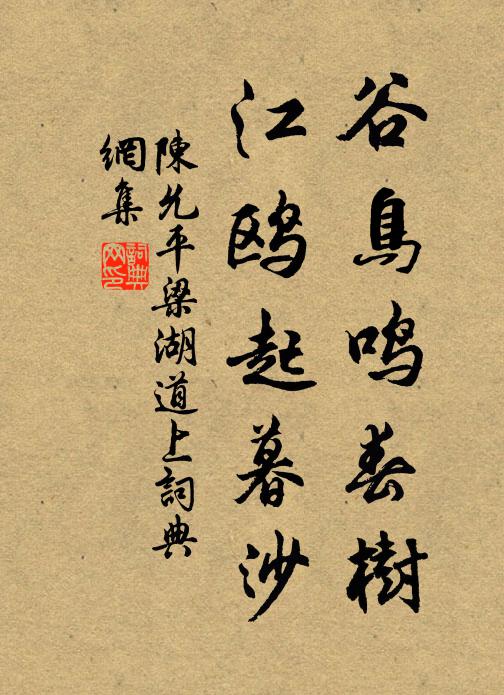 谷鳥鳴春樹
江鸥起暮沙
陳允平梁湖道上詞典
網集
詞典网印